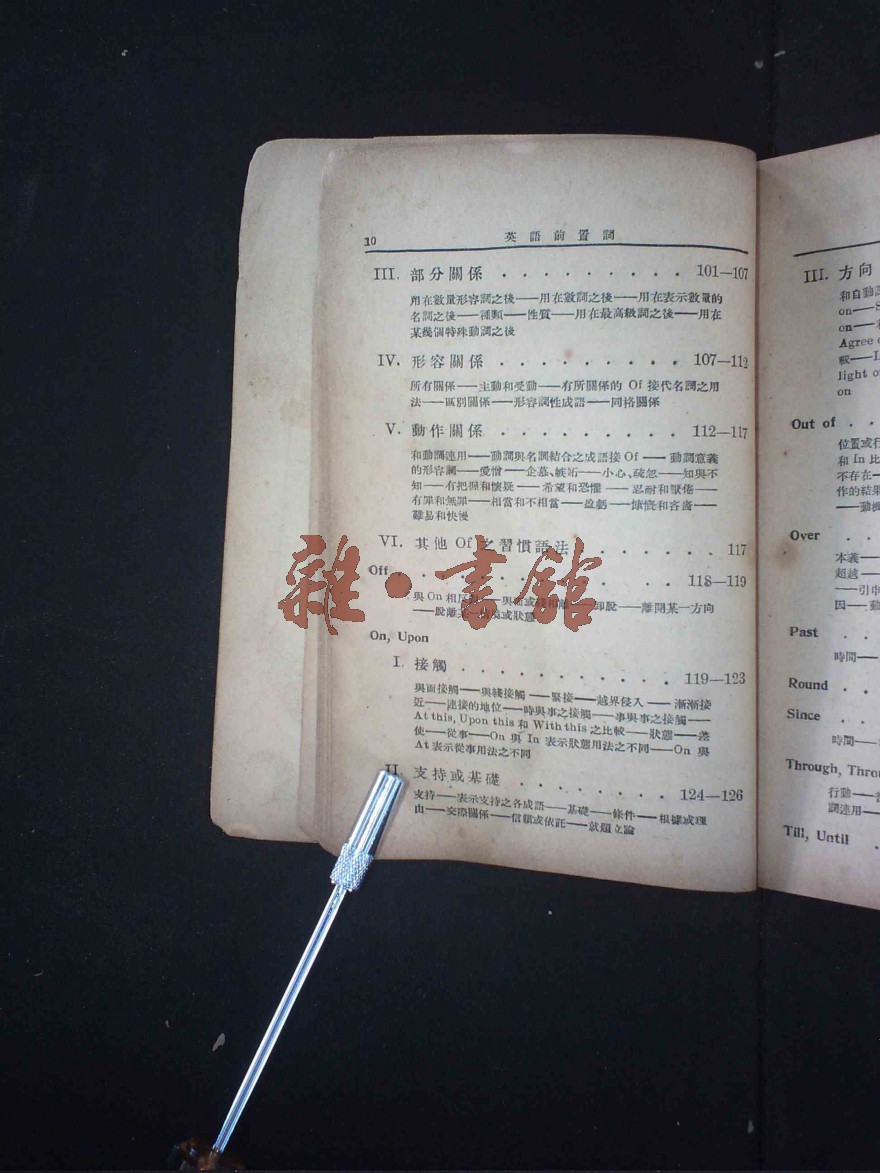 10 英語前置詞
III. 部分關係 . . . . . . . . . 101—107
用在數量形容詞之後——用在數詞之後——用在表示數量的
名詞之後——種類——性質——用在最高級詞之後——用在
某幾個特殊動詞之後
IV. 形容關係 . . . . . . . . . 107—112
所有關係——主動和受動——有所關係的 Of 接代名詞之用
法——區別關係——形容詞性成語——同格關係
V. 動作關係 . . . . . . . . . 112—117
和動詞連用——動詞與名詞結合之成語接Of——動詞意義
的形容詞——愛憎——企慕、嫉妬——小心、疏忽——知與不
知——有把握和懷疑——希望和恐懼——忍耐和厭倦——
有罪和無罪——相當和不相當——盈虧——慷慨和吝嗇——
難易和快慢
VI. 其他 Of 之習慣語法 . . . . . . 117
Off . . . . . . . . . 118—119
與On 相反——與面或綫相離——卸脫——離開某一方向
——脫離某一情境或狀態
On, Upon
I. 接觸 . . . . . . . . . 119—123
與面接觸——與綫接觸——緊接——越界侵入——漸漸接
近——連接的地位——時與事之接觸——事與事之接觸——
At this, Upon this 和 With this 之比較——狀態——差
使——從事——On 與 In 表示狀態用法之不同——On 與
At 表示從事用法之不同
II. 支持或基礎 . . . . . . . . 124—126
支持——表示支持之各成語——基礎——條件——根據或理
由——交際關係——信賴或依託——就題立論
雜·書館
III. 方向
和自動
on——S
on——
Agree o
較——I
light o
on
Out of . .
位置或行
和 In 比
不存在—
作的結果
——動機
Over . .
本義—
超越—
——引申
因——動
Past . .
時間—
Round . .
Since . .
時間—
Through, Thro
行動—
詞連用—
Till, Until .